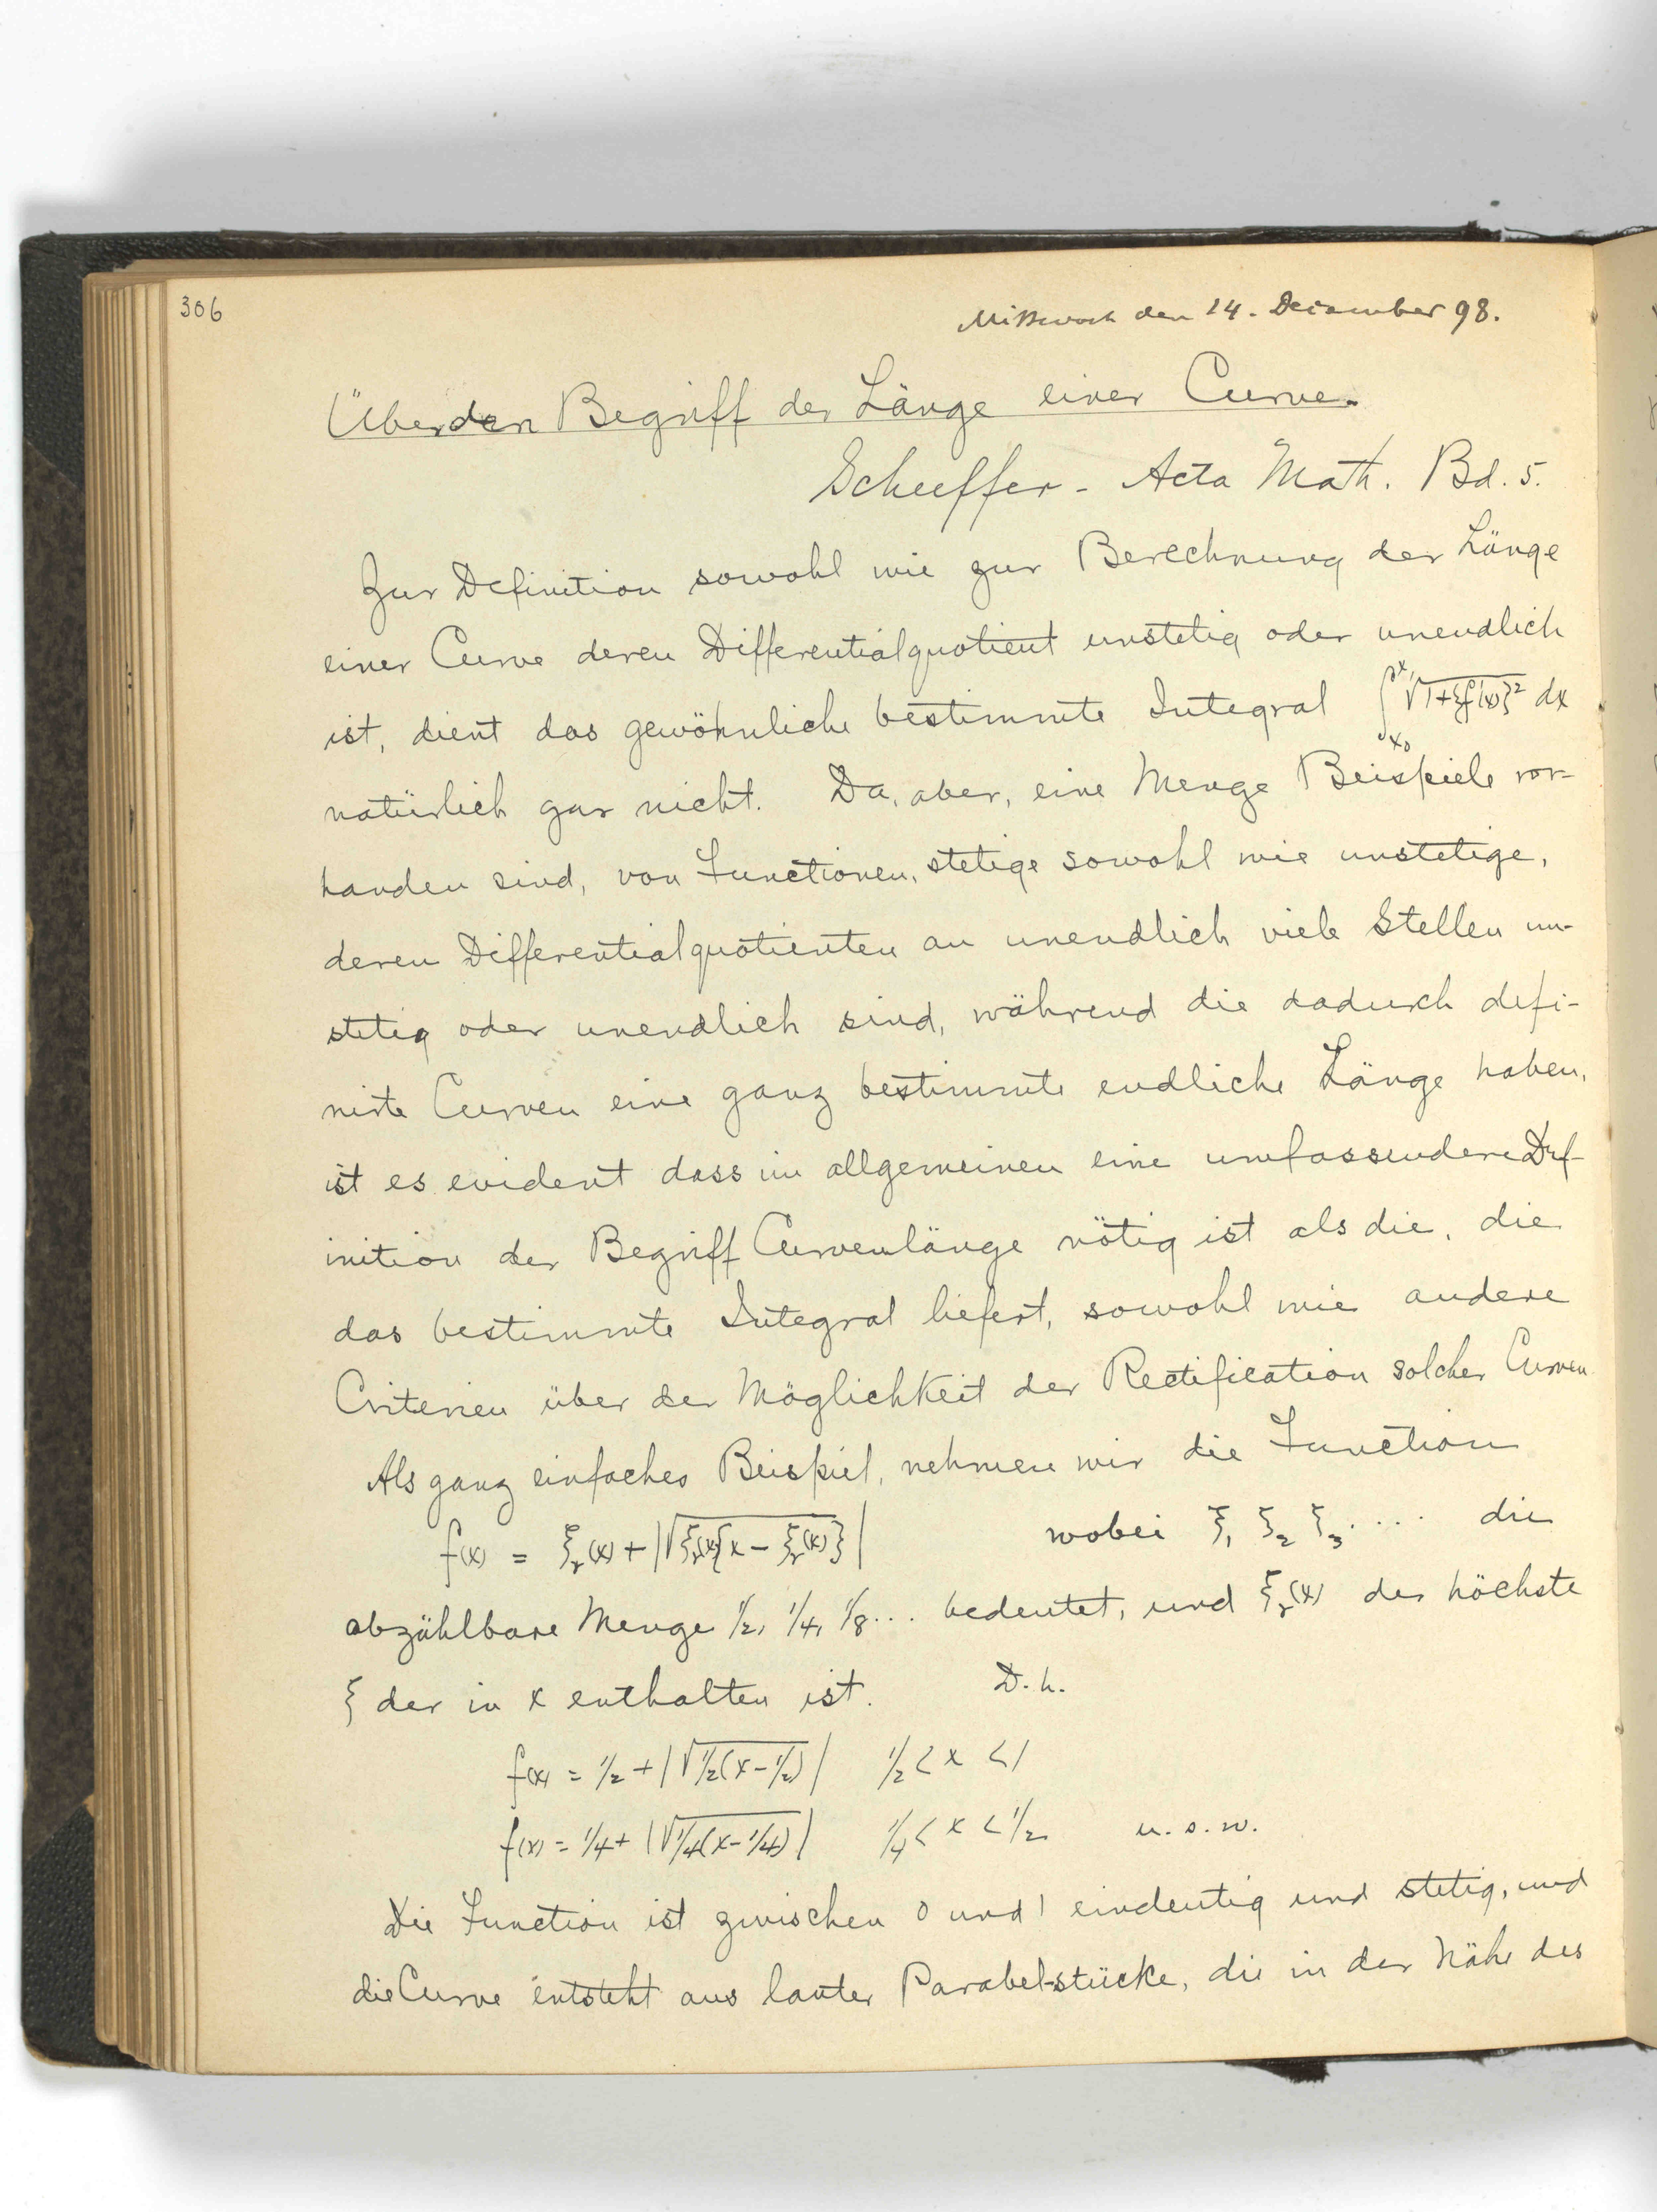 306
Mittwoch den 14. December 98.
Über den Begriff der Länge einer Curve.
Scheeffer - Acta Math. Bd. 5.
Zur Definition sowohl wie zur Berechnung der Länge
einer Curve deren Differentialquotient unstetig oder unendlich
ist, dient das gewöhnliche bestimmte Integral ∫_{x₀}^{x₁} √1+{f'(x)}² dx
natürlich gar nicht. Da, aber, eine Menge Beispiele vor-
handen sind, von Functionen, stetige sowohl wie unstetige,
deren Differentialquotienten an unendlich viele Stellen un-
stetig oder unendlich sind, während die dadurch defi-
nirte Curven eine ganz bestimmte endliche Länge haben,
ist es evident dass im allgemeinen eine umfassendere Def-
inition der Begriff Curvenlänge nötig ist als die, die
das bestimmte Integral liefert, sowohl wie andere
Criterien über der Möglichkeit der Rectification solcher Curven
Als ganz einfaches Beispiel, nehmen wir die Function
f(x) = ξᵣ(x) + |√ξᵣ(x){x - ξᵣ(x)}| wobei ξ₁ ξ₂ ξ₃ .... die
abzählbare Menge 1/2, 1/4, 1/8 ... bedeutet, und ξᵣ(x) der höchste
ξ der in x enthalten ist. D.h.
f(x) = 1/2 + |√1/2(x-1/2)| 1/2 < x < 1
f(x) = 1/4 + |√1/4(x-1/4)| 1/4 < x < 1/2 u.s.w.
Die Function ist zwischen 0 und 1 eindeutig und stetig, und
die Curve entsteht aus lauter Parabel-stücke, die in der Nähe des